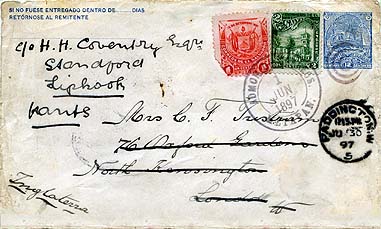 SI NO FUESE ENTREGADO DENTRO DE........DIAS
RETÓRNOSE AL REMITENTE
c/o H. H. Coventry Esqre
Standford
Liphook
Hants
Mrs C. F. Tristram
76 Oxford Gardens
North Kensington
London W
Inglaterra
JUN
1897
PADDINGTON W
12.15 PM
JU 30
97
5